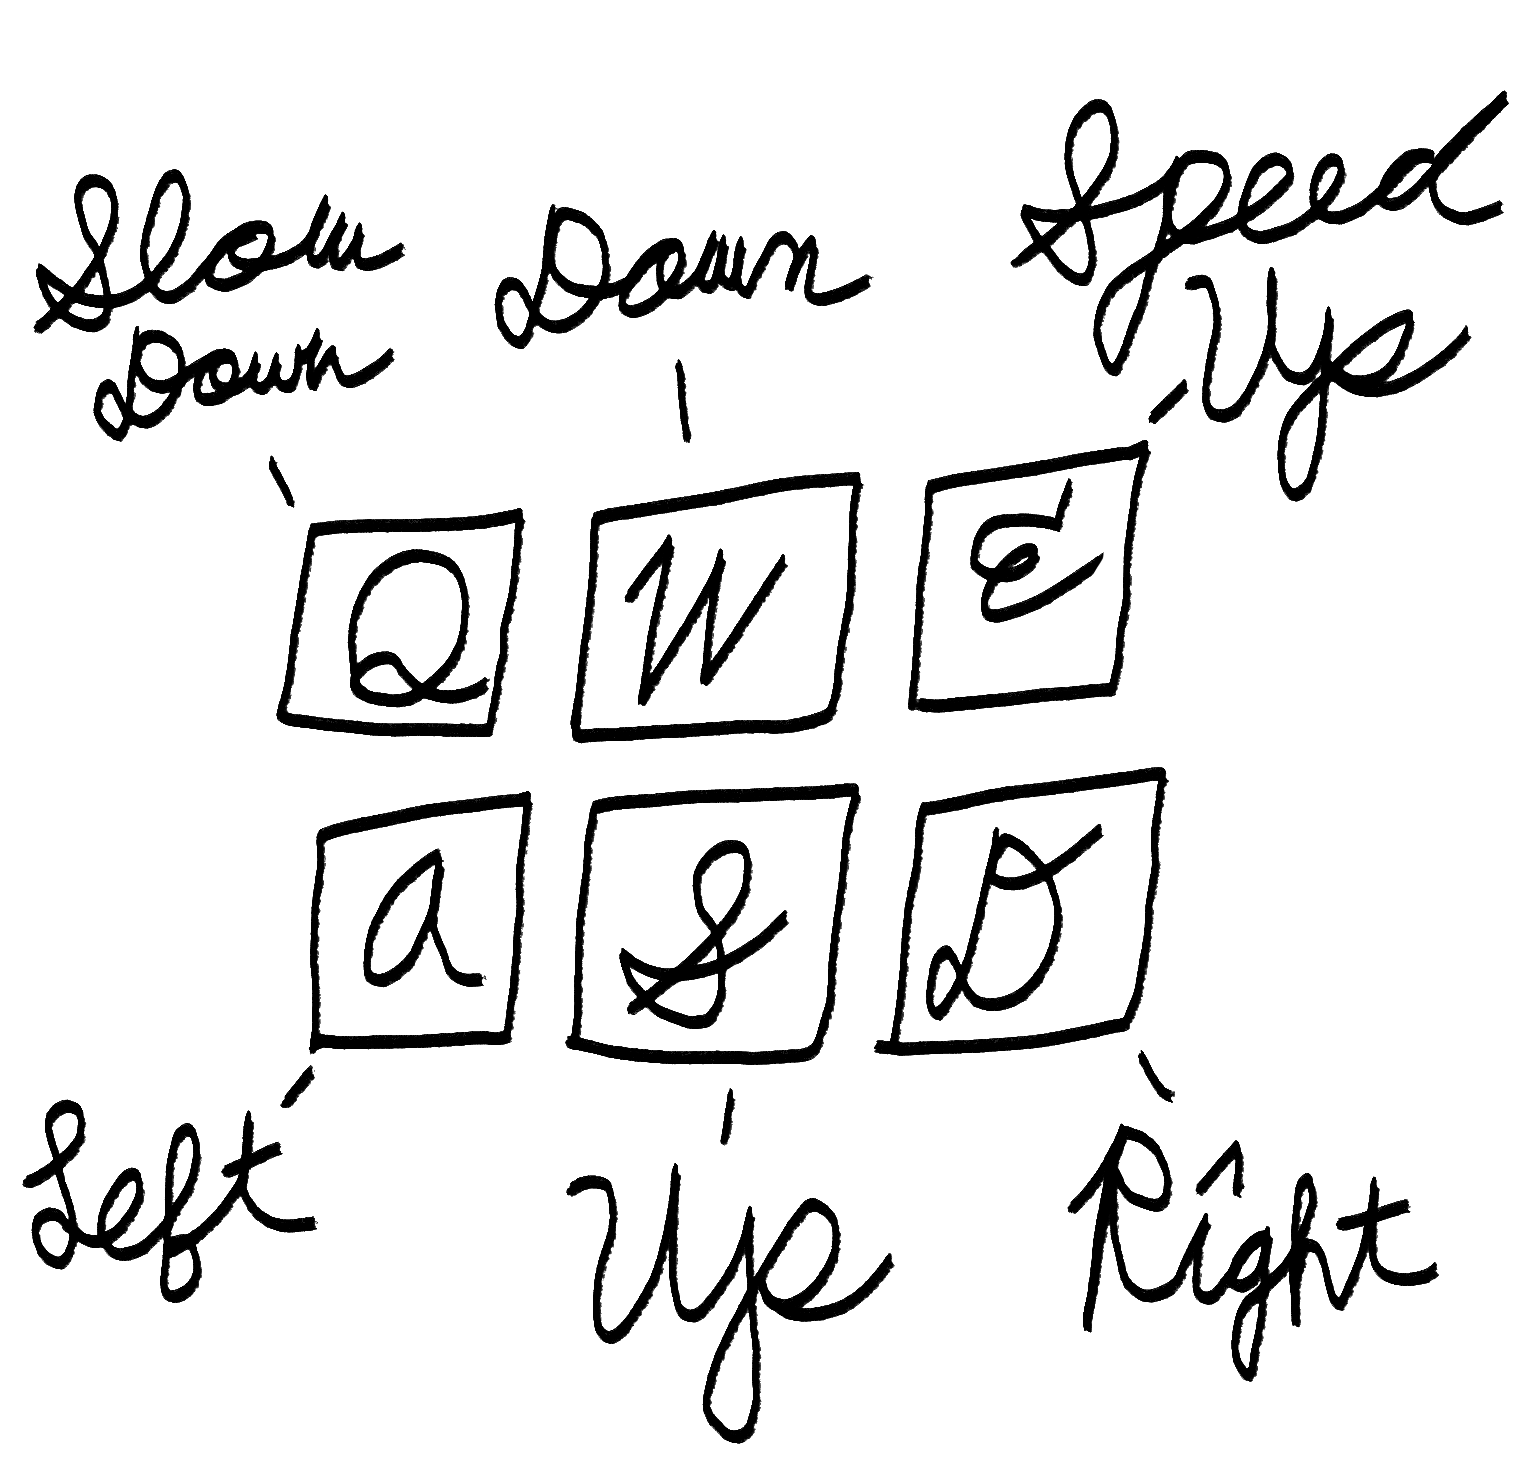 Slow
Down
Down
Speed
Up
Q W E
A S D
Left
Up
Right